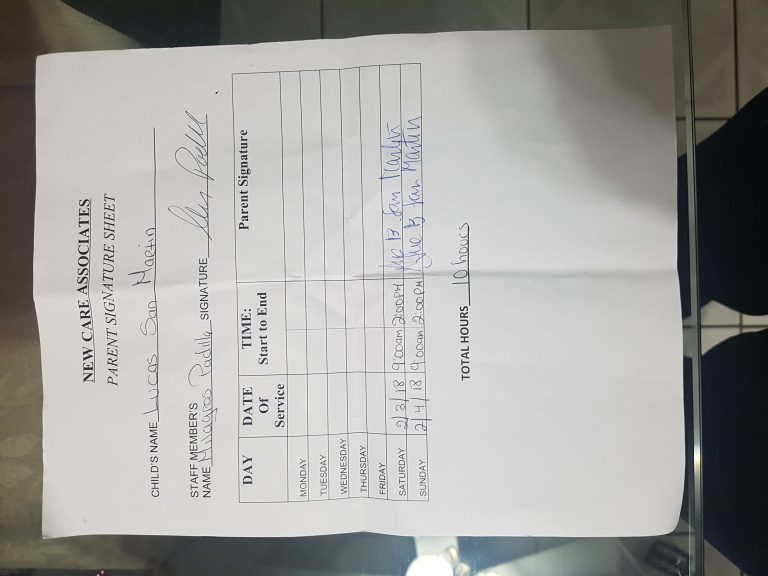 NEW CARE ASSOCIATES
PARENT SIGNATURE SHEET
CHILD'S NAME Lucas San Martin
STAFF MEMBER'S
NAME Milagros Padilla SIGNATURE
DAY DATE Of Service TIME: Start to End Parent Signature
MONDAY
TUESDAY
WEDNESDAY
THURSDAY
FRIDAY
SATURDAY 2/3/18 9:00am 2:00PM B San Martin
SUNDAY 2/4/18 9:00am 2:00PM B San Martin
TOTAL HOURS 10 hours